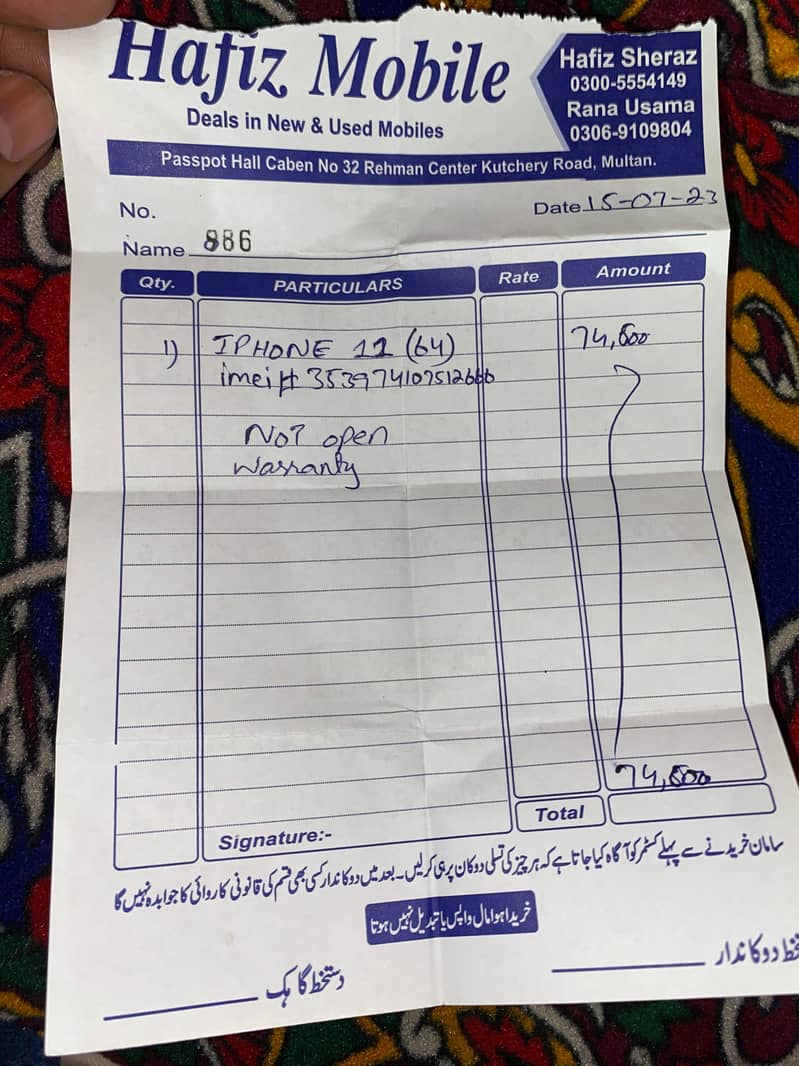 Hafiz Mobile
Deals in New & Used Mobiles
Hafiz Sheraz
0300-5554149
Rana Usama
0306-9109804
Passpot Hall Caben No 32 Rehman Center Kutchery Road, Multan.
No. 886
Date 15-07-23
Name
Qty. PARTICULARS Rate Amount
1) IPHONE 11 (64) 74,500
imei # 353974107512666
NOT open
warranty
74,500
Total
Signature:-
سامان خریدنے سے پہلے کسٹمر کو آگاہ کیا جاتا ہے کہ ہر چیز کی تسلی دوکان پر ہی کر لیں۔ بعد میں دوکاندار کسی بھی قسم کی قانونی کاروائی کا جوابدہ نہیں ہوگا
خریدا ہوا مال واپس یا تبدیل نہیں ہوتا
دستخط گاہک
دوکاندار